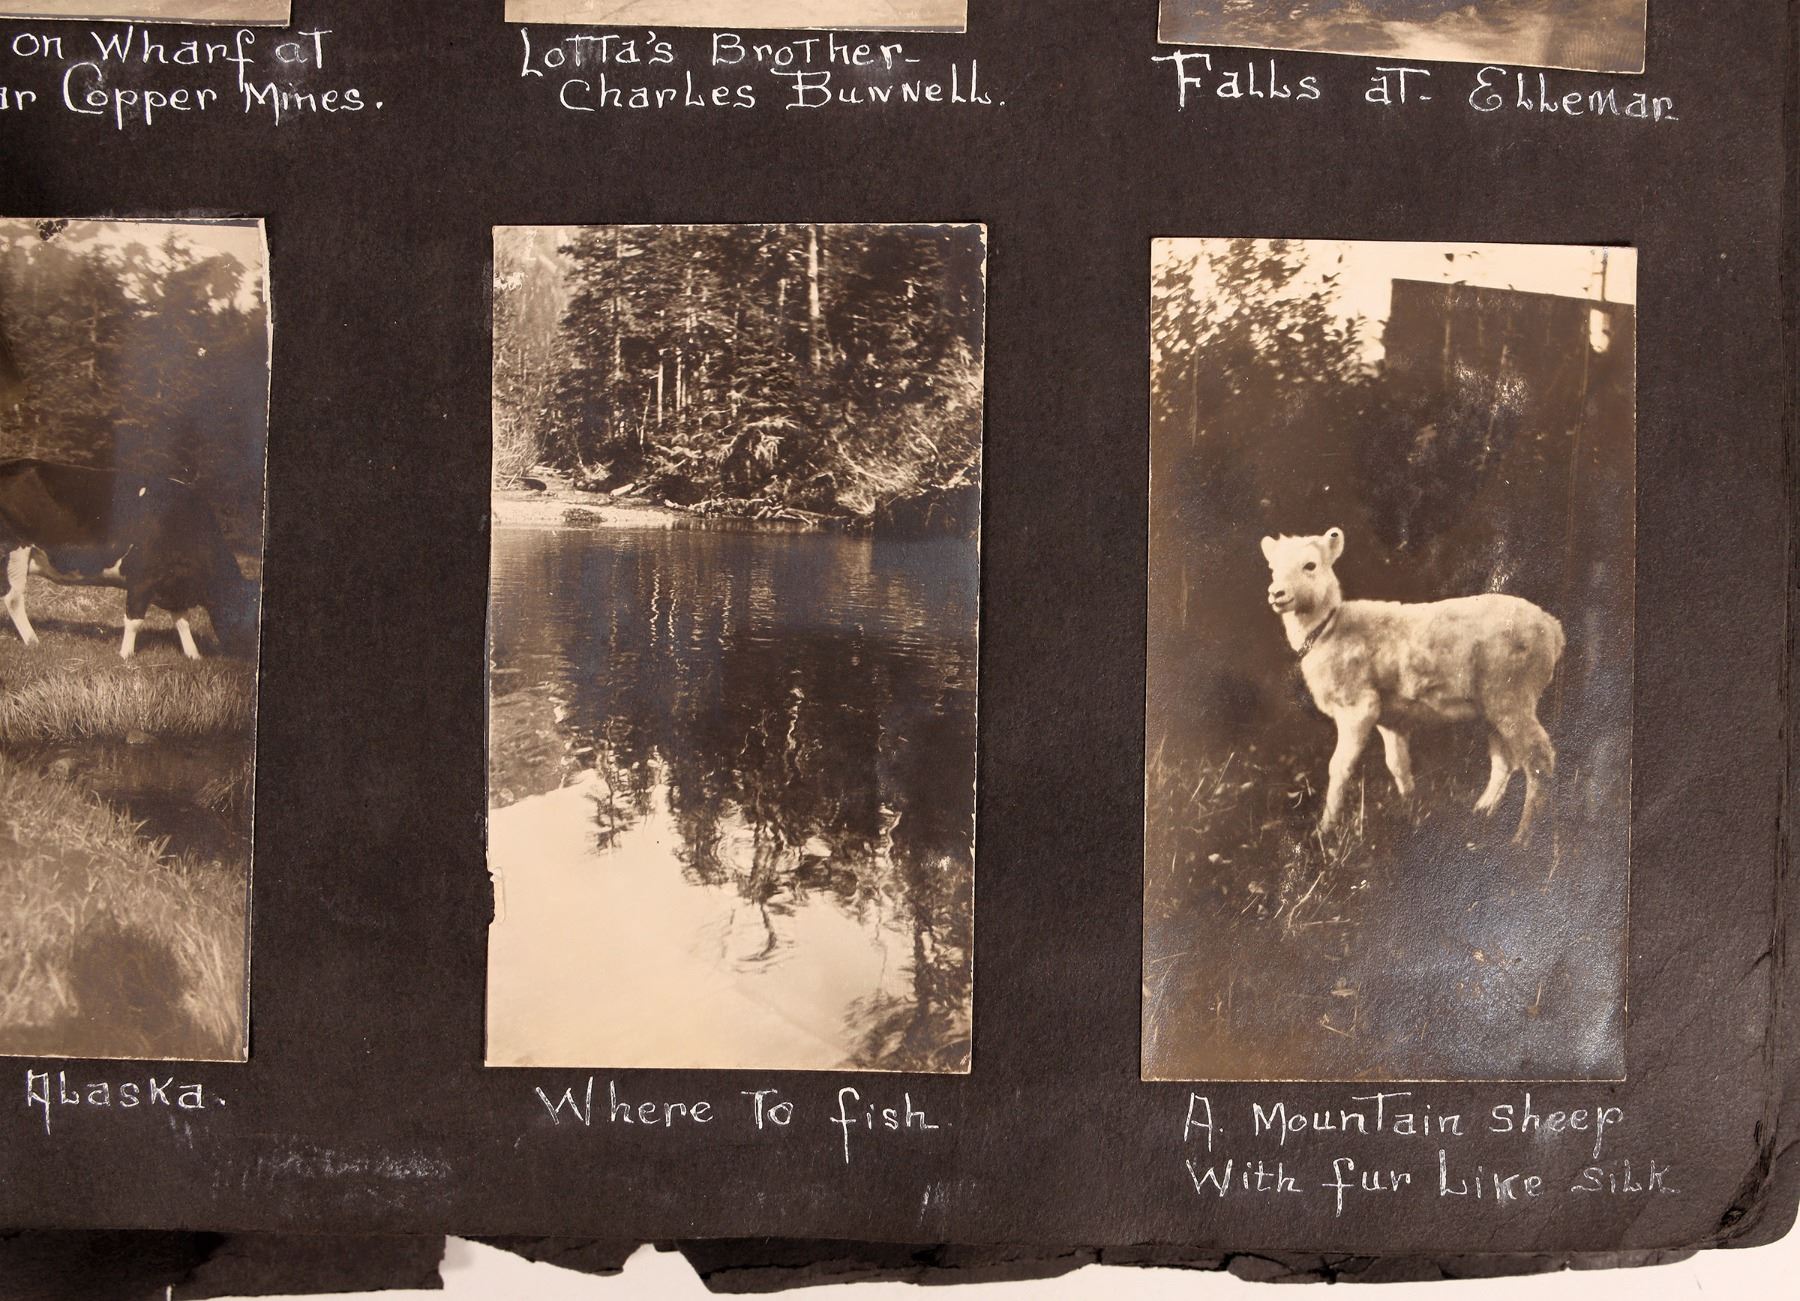 on Wharf at
ar Copper Mines.
Lotta's Brother-
Charles Bunnell.
Falls at- Ellemar
Alaska.
Where To fish.
A. Mountain sheep
With fur Like silk